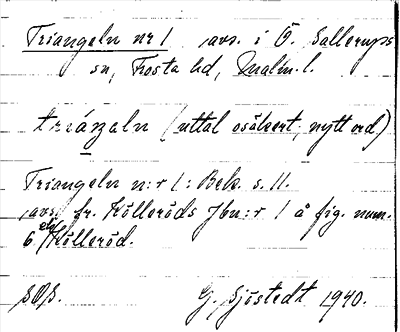 Triangeln nr 1 avs. i Ö. Sallerups
sn, Frosta hd, Malm. l.
triáŋəln (uttal osäkert; nytt ord)
Triangeln n:r 1 : Bek. s. 11.
avs. fr. Kölleröds Jbn:r 1 å fig. num.
6 el. Kölleröd.
SOS. G. Sjöstedt 1940.